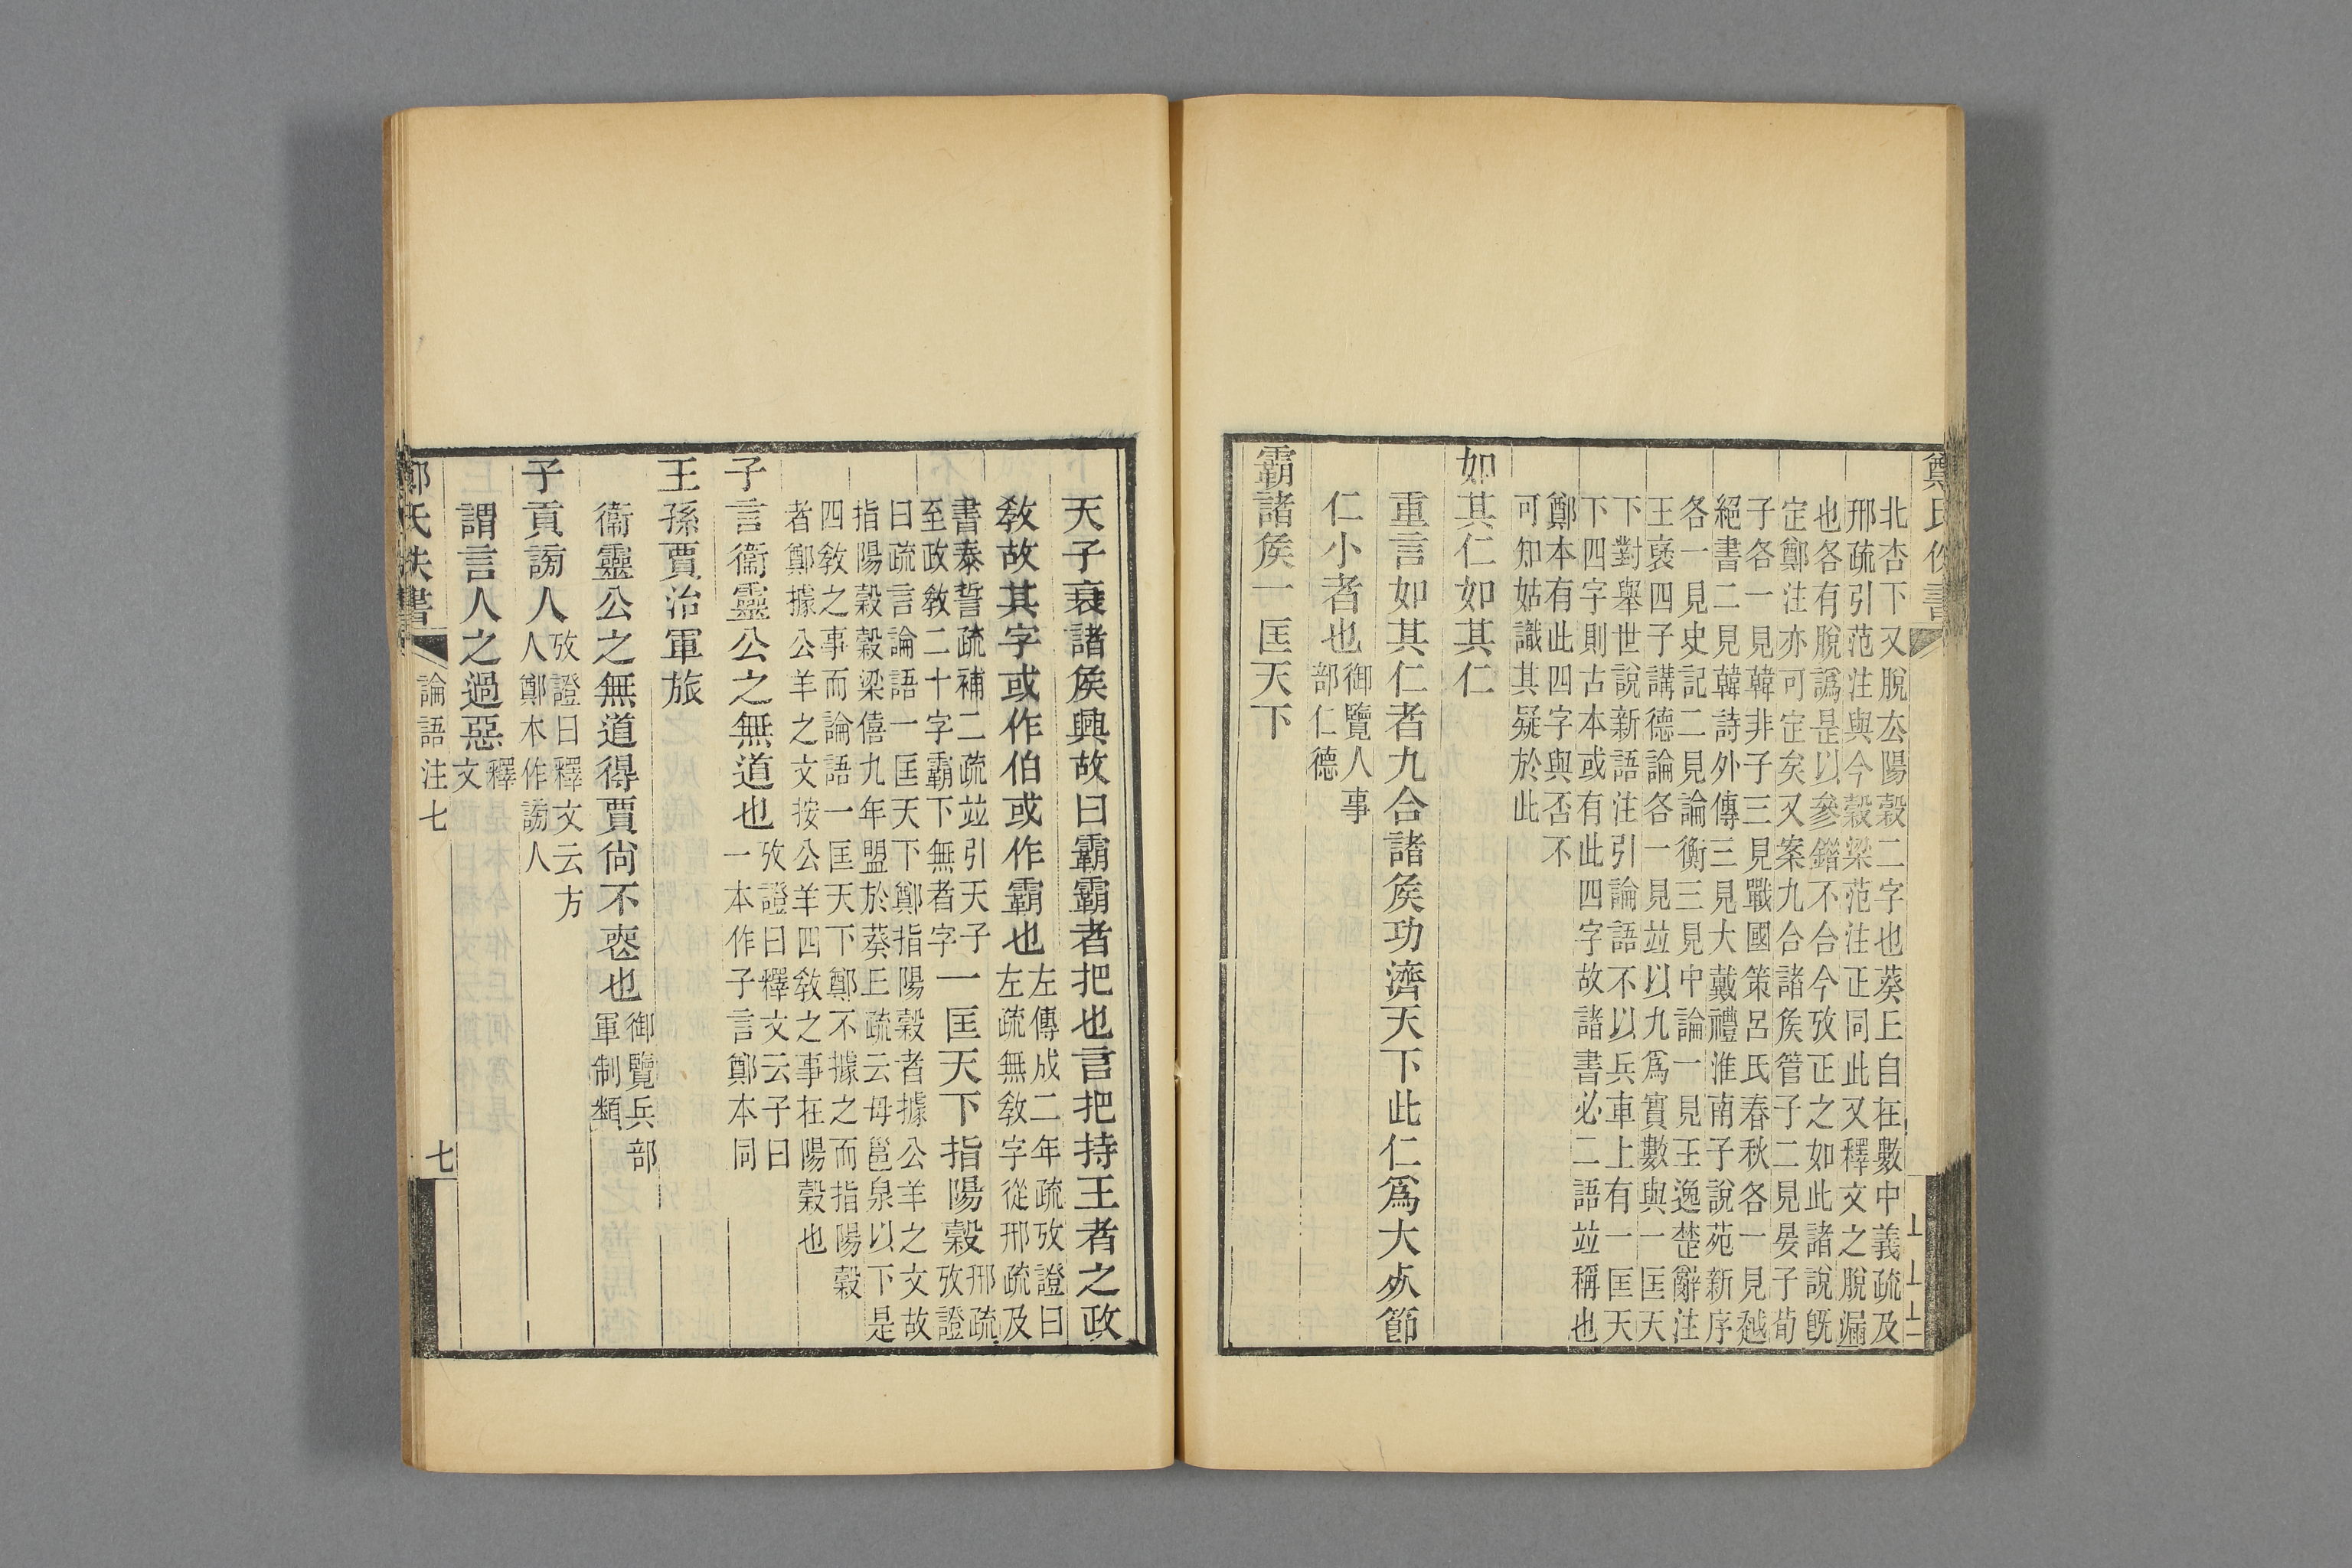 鄭氏佚書
北杏下又脫厺陽穀二字也葵丘自在數中義疏及
邢疏引范注與今穀梁范注正同此又釋文之脫漏
也各有脫譌是以參錯不合今攷正之如此諸說旣
定鄭注亦可定矣又案九合諸矦管子二見晏子荀
子各一見韓非子三見戰國策呂氏春秋各一見越
絕書二見韓詩外傳三見大戴禮淮南子說苑新序
各一見史記二見論衡三見中論一見王逸楚辭注
王襃四子講德論各一見竝以九爲實數與一匡天
下對舉世說新語注引論語不以兵車上有一匡天
下四字則古本或有此四字故諸書必二語竝稱也
鄭本有此四字與否不
可知姑識其疑於此
如其仁如其仁
重言如其仁者九合諸矦功濟天下此仁爲大𣦸節
仁小者也御覽人事
部仁德
霸諸矦一匡天下
天子衰諸矦興故曰霸霸者把也言把持王者之政
敎故其字或作伯或作霸也左傳成二年疏攷證曰
左疏無敎字從邢疏及
書泰誓疏補二疏竝引天子
至政敎二十字霸下無者字一匡天下指陽穀邢疏
攷證
曰疏言論語一匡天下鄭指陽穀者據公羊之文故
指陽穀穀梁僖九年盟於葵丘疏云毋雝泉以下是
四敎之事而論語一匡天下鄭不據之而指陽穀
者鄭據公羊之文按公羊四敎之事在陽穀也
子言衞靈公之無道也攷證曰釋文云子曰
一本作子言鄭本同
王孫賈治軍旅
衞靈公之無道得賈尙不䘮也御覽兵部
軍制類
子貢謗人攷證曰釋文云方
人鄭本作謗人
謂言人之過惡釋
文
鄭氏佚書
論語注七
七